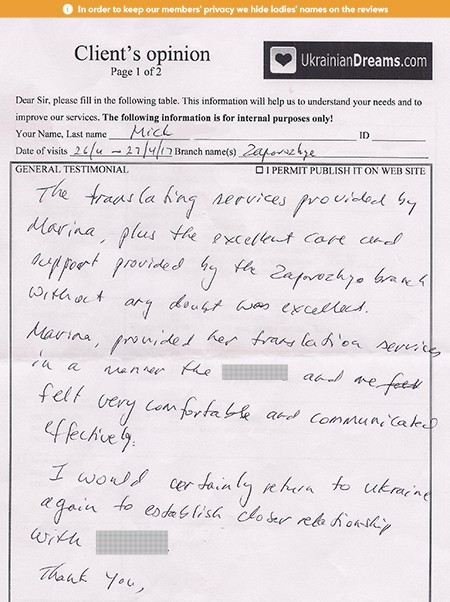 In order to keep our members' privacy we hide ladies' names on the reviews
Client's opinion
Page 1 of 2
UkrainianDreams.com
Dear Sir, please fill in the following table. This information will help us to understand your needs and to
improve our services. The following information is for internal purposes only!
Your Name, Last name Mick ID
Date of visits 26/4 – 27/4/17 Branch name(s) Zaporozhye
GENERAL TESTIMONIAL ☐ I PERMIT PUBLISH IT ON WEB SITE
The translating services provided by
Marina, plus the excellent care and
support provided by the Zaporozhye branch
without any doubt was excellent.
Marina, provided her translation services
in a manner the and me
felt very comfortable and communicated
effectively.
I would certainly return to Ukraine
again to establish closer relationship
with
Thank You,